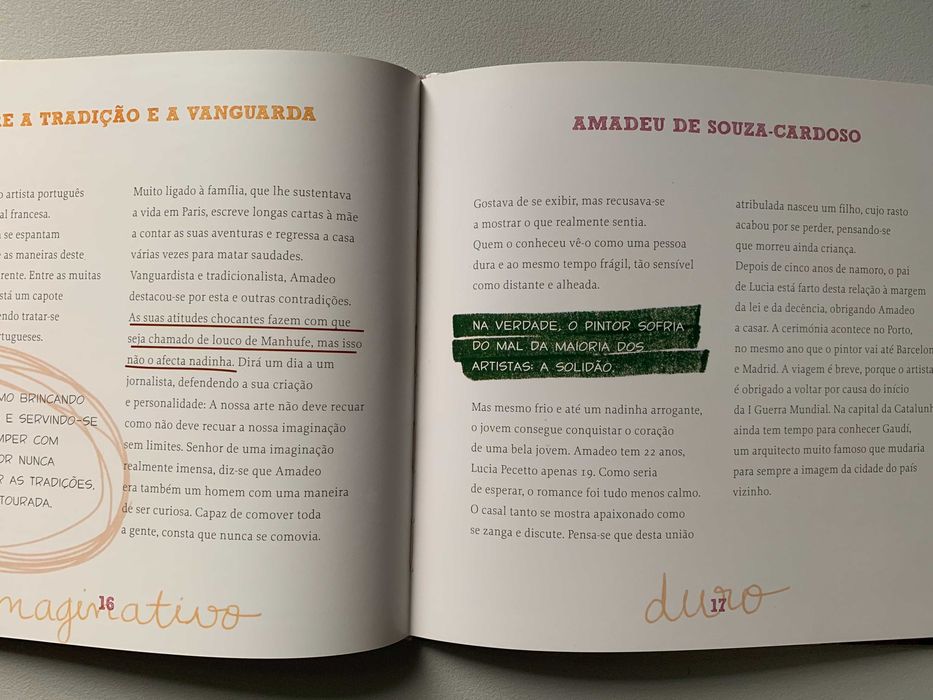 A TRADIÇÃO E A VANGUARDA
o artista português
al francesa.
se espantam
as maneiras deste
rente. Entre as muitas
stá um capote
endo tratar-se
rtugueses.
MO BRINCANDO
E SERVINDO-SE
MPER COM
OR NUNCA
R AS TRADIÇÕES,
TOURADA.
Muito ligado à família, que lhe sustentava
a vida em Paris, escreve longas cartas à mãe
a contar as suas aventuras e regressa a casa
várias vezes para matar saudades.
Vanguardista e tradicionalista, Amadeo
destacou-se por esta e outras contradições.
As suas atitudes chocantes fazem com que
seja chamado de louco de Manhufe, mas isso
não o afecta nadinha. Dirá um dia a um
jornalista, defendendo a sua criação
e personalidade: A nossa arte não deve recuar
como não deve recuar a nossa imaginação
sem limites. Senhor de uma imaginação
realmente imensa, diz-se que Amadeo
era também um homem com uma maneira
de ser curiosa. Capaz de comover toda
a gente, consta que nunca se comovia.
maginativo
16
AMADEU DE SOUZA-CARDOSO
Gostava de se exibir, mas recusava-se
a mostrar o que realmente sentia.
Quem o conheceu vê-o como uma pessoa
dura e ao mesmo tempo frágil, tão sensível
como distante e alheada.
NA VERDADE, O PINTOR SOFRIA
DO MAL DA MAIORIA DOS
ARTISTAS: A SOLIDÃO.
Mas mesmo frio e até um nadinha arrogante,
o jovem consegue conquistar o coração
de uma bela jovem. Amadeo tem 22 anos,
Lucia Pecetto apenas 19. Como seria
de esperar, o romance foi tudo menos calmo.
O casal tanto se mostra apaixonado como
se zanga e discute. Pensa-se que desta união
atribulada nasceu um filho, cujo rasto
acabou por se perder, pensando-se
que morreu ainda criança.
Depois de cinco anos de namoro, o pai
de Lucia está farto desta relação à margem
da lei e da decência, obrigando Amadeo
a casar. A cerimónia acontece no Porto,
no mesmo ano que o pintor vai até Barcelon
e Madrid. A viagem é breve, porque o artista
é obrigado a voltar por causa do início
da I Guerra Mundial. Na capital da Catalunh
ainda tem tempo para conhecer Gaudí,
um arquitecto muito famoso que mudaria
para sempre a imagem da cidade do país
vizinho.
duro
17